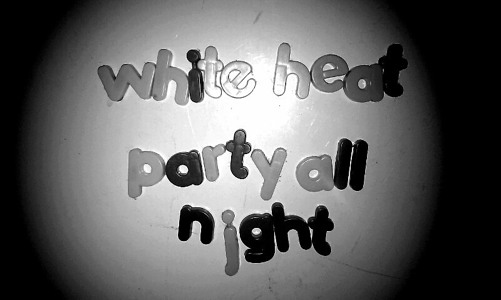 white heat
party all
night